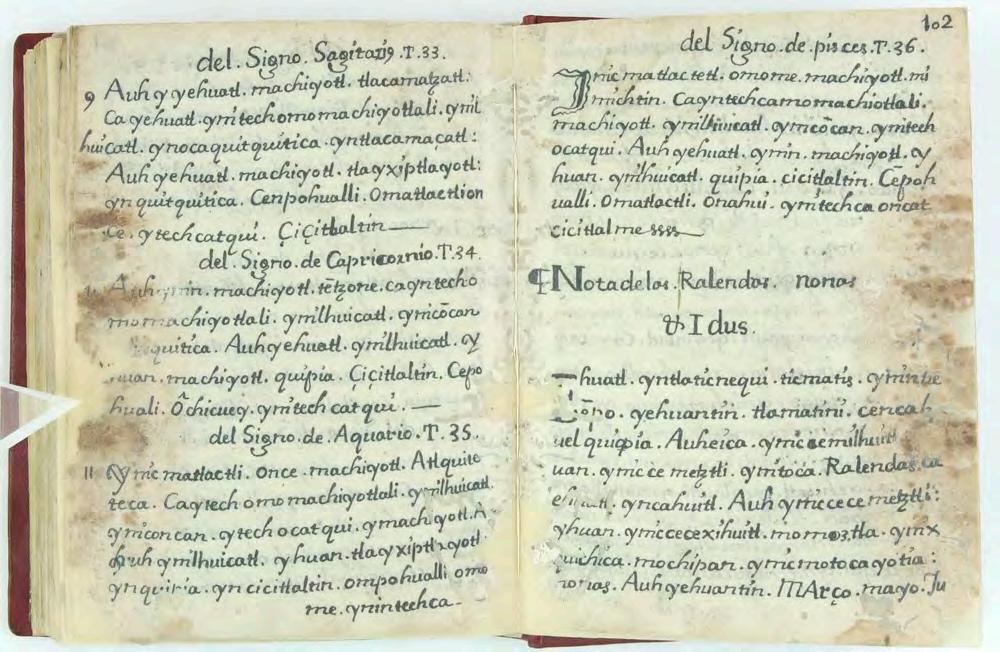 del. Signo. Sagitario. T. 33.
9 Auh y yehuatl. machiyotl. tlacamatzatl:
Ca yehuatl. ynitech omomachiyotlali. ynil
huicatl. ynocaquitquitica. yntlacamacatl:
Auh yehuatl. machiyotl. tlayxiptlayotl:
ynquitquitica. Cenpohualli. Omatlactlion
ce. ytechcatqui. Çiçitlaltin
del. Signo. de Capricornio. T. 34.
machiyotl. tẽtzone. cayntecho
momachiyotlali. ynilhuicatl. ynicõcan
quitica. Auh yehuatl. ynilhuicatl. oy
machiyotl. quipia. Çiçitlaltin. Cepo
huali. Ôchicuey. ynitech catqui.
del Signo. de. Aquario. T. 35.
11 Oynic matlactli. once. machiyotl. Atlquite
teca. Caytech omomachiyotlali. ynilhuicatl.
yniconcan. ytech ocatqui. ymachiyotl. A
auh ynilhuicatl. yhuan. tlayxiptlayotl.
ynquipia. yn cicitlaltin. ompohualli omo
me. ynintechca-
102
del Signo. de. pisces. T. 36.
Inic matlactetl. omome. machiyotl. mi
michtin. Cayntechcamomachiotlali.
machiyotl. ynilhuicatl. ynicõcan. ynitech
ocatqui. Auh yehuatl. ynin. machiyotl. oy
huan. ynilhuicatl. quipia. cicitlaltin. Cepoh
ualli. Omatlactli. Onahui. ynitechca oncat
cicitlalme ssss
¶ Nota de las. Kalendas. nonas
& Idus.
huatl. yntlaticnequi. ticmatis.
yehuantin. tlamatini. cenca
uel quipia. Auheica. ynic cemilhuitl
uan. ynic ce metztli. ynitoca. Kalendas. ca
yncahuitl. Auh ynic cece metztli:
yhuan. yniccecexihuitl. momoztla. ynix
quichica. mochipan. ynic motocayotia:
nonas. Auh yehuantin. MArço. mayo. Ju